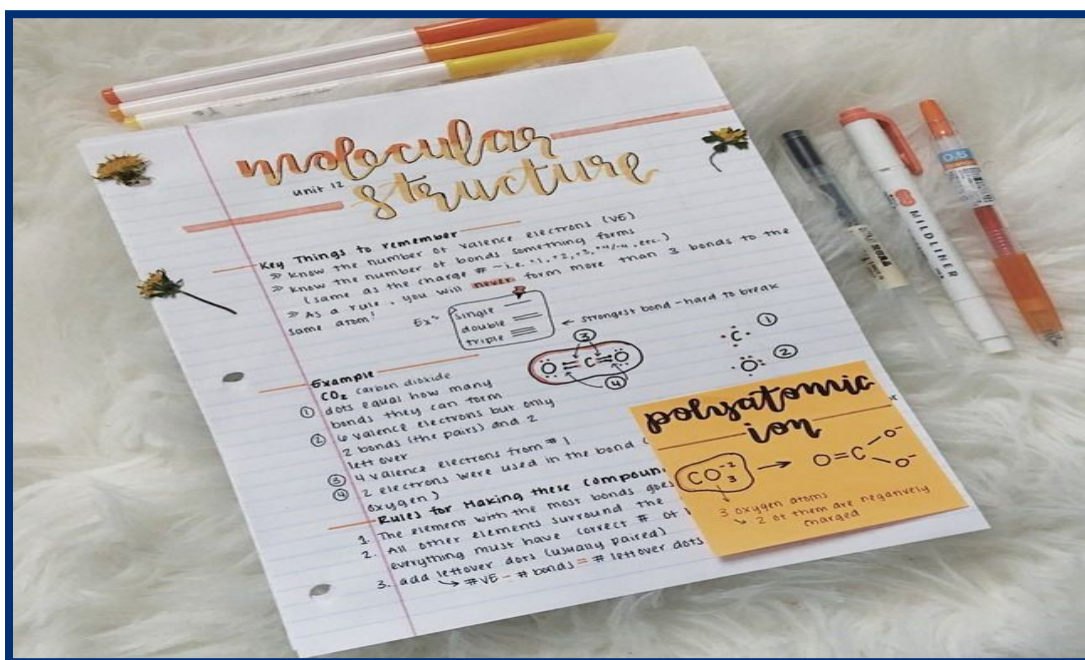 molecular
unit 12
structure
Key Things to remember
» Know the number of valence electrons (VE)
» Know the number of bonds something forms
(same as the charge # - i.e. +1, +2, +3, +4/-4, etc.)
» As a rule, you will never form more than 3 bonds to the
same atom!
Ex:
single
double
triple
← strongest bond - hard to break
Example
CO₂ carbon dioxide
① dots equal how many
bonds they can form
② 6 valence electrons but only
2 bonds (the pairs) and 2
left over
③ 4 valence electrons from #1
④ 2 electrons were used in the bond (
oxygen)
③
O=C=O
④
C ①
O ②
Rules for Making these compoun
1. The element with the most bonds goes
2. All other elements surround the
everything must have correct # of
3. add leftover dots (usually paired)
↳ #VE - # bonds = # leftover dots
polyatomic
ion
CO₃⁻² → O=C O⁻ O⁻
3 oxygen atoms
↳ 2 of them are negatively
charged
MILDLINER
0.5